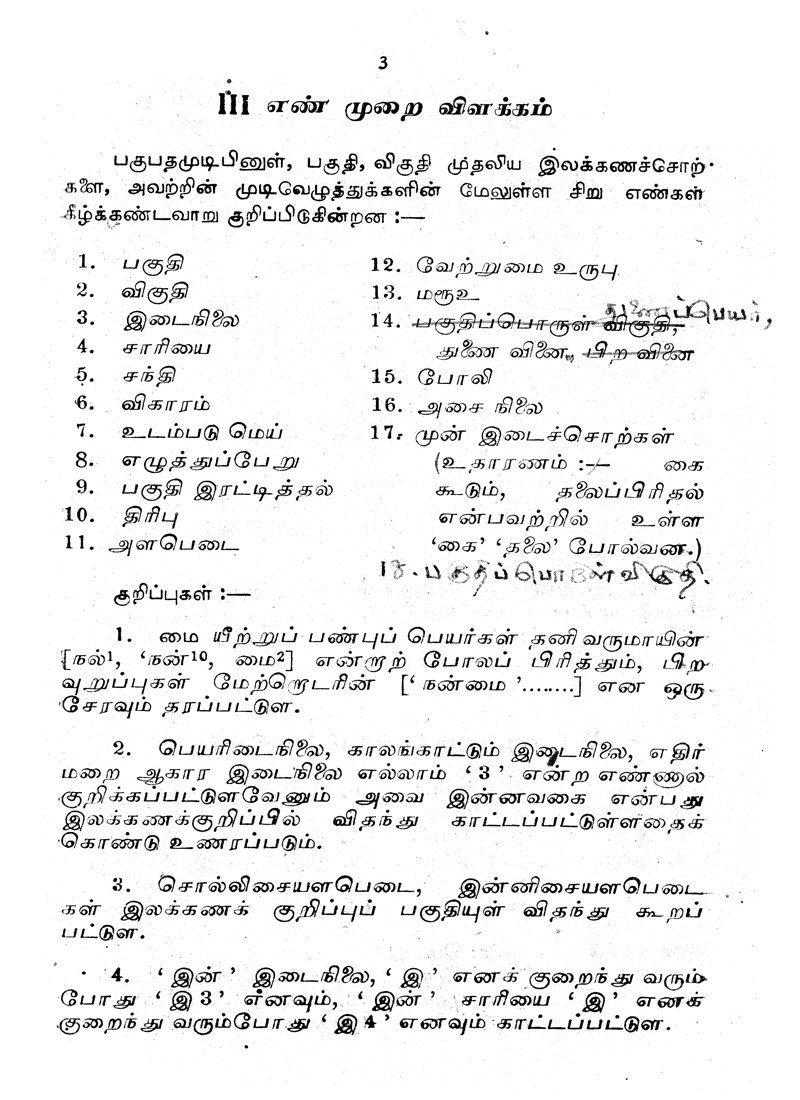 3
III எண் முறை விளக்கம்
பகுபதமுடிபினுள், பகுதி, விகுதி முதலிய இலக்கணச்சொற்
களை, அவற்றின் முடிவெழுத்துக்களின் மேலுள்ள சிறு எண்கள்
கீழ்க்கண்டவாறு குறிப்பிடுகின்றன :—
1. பகுதி
2. விகுதி
3. இடைநிலை
4. சாரியை
5. சந்தி
6. விகாரம்
7. உடம்படு மெய்
8. எழுத்துப்பேறு
9. பகுதி இரட்டித்தல்
10. திரிபு
11. அளபெடை
12. வேற்றுமை உருபு
13. மரூஉ
துணைப்பெயர்,
14. பகுதிப்பொருள் விகுதி,
துணை வினை, பிற வினை
15. போலி
16. அசை நிலை
17. முன் இடைச்சொற்கள்
(உதாரணம் :— கை
கூடும், தலைப்பிரிதல்
என்பவற்றில் உள்ள
‘கை’ ‘தலை’ போல்வன.)
18. பகுதிப்பொருள்விகுதி.
குறிப்புகள் :—
1. மை யீற்றுப் பண்புப் பெயர்கள் தனி வருமாயின்
[நல்¹, ‘நன்¹⁰, மை²] என்றாற் போலப் பிரித்தும், பிற
வுறுப்புகள் மேற்றொடரின் [‘நன்மை’........] என ஒரு
சேரவும் தரப்பட்டுள.
2. பெயரிடைநிலை, காலங்காட்டும் இடைநிலை, எதிர்
மறை ஆகார இடைநிலை எல்லாம் ‘3’ என்ற எண்ணால்
குறிக்கப்பட்டுளவேனும் அவை இன்னவகை என்பது
இலக்கணக்குறிப்பில் விதந்து காட்டப்பட்டுள்ளதைக்
கொண்டு உணரப்படும்.
3. சொல்லிசையளபெடை, இன்னிசையளபெடை
கள் இலக்கணக் குறிப்புப் பகுதியுள் விதந்து கூறப்
பட்டுள.
4. ‘இன்’ இடைநிலை, ‘இ’ எனக் குறைந்து வரும்
போது ‘இ 3’ எனவும், ‘இன்’ சாரியை ‘இ’ எனக்
குறைந்து வரும்போது ‘இ 4’ எனவும் காட்டப்பட்டுள.